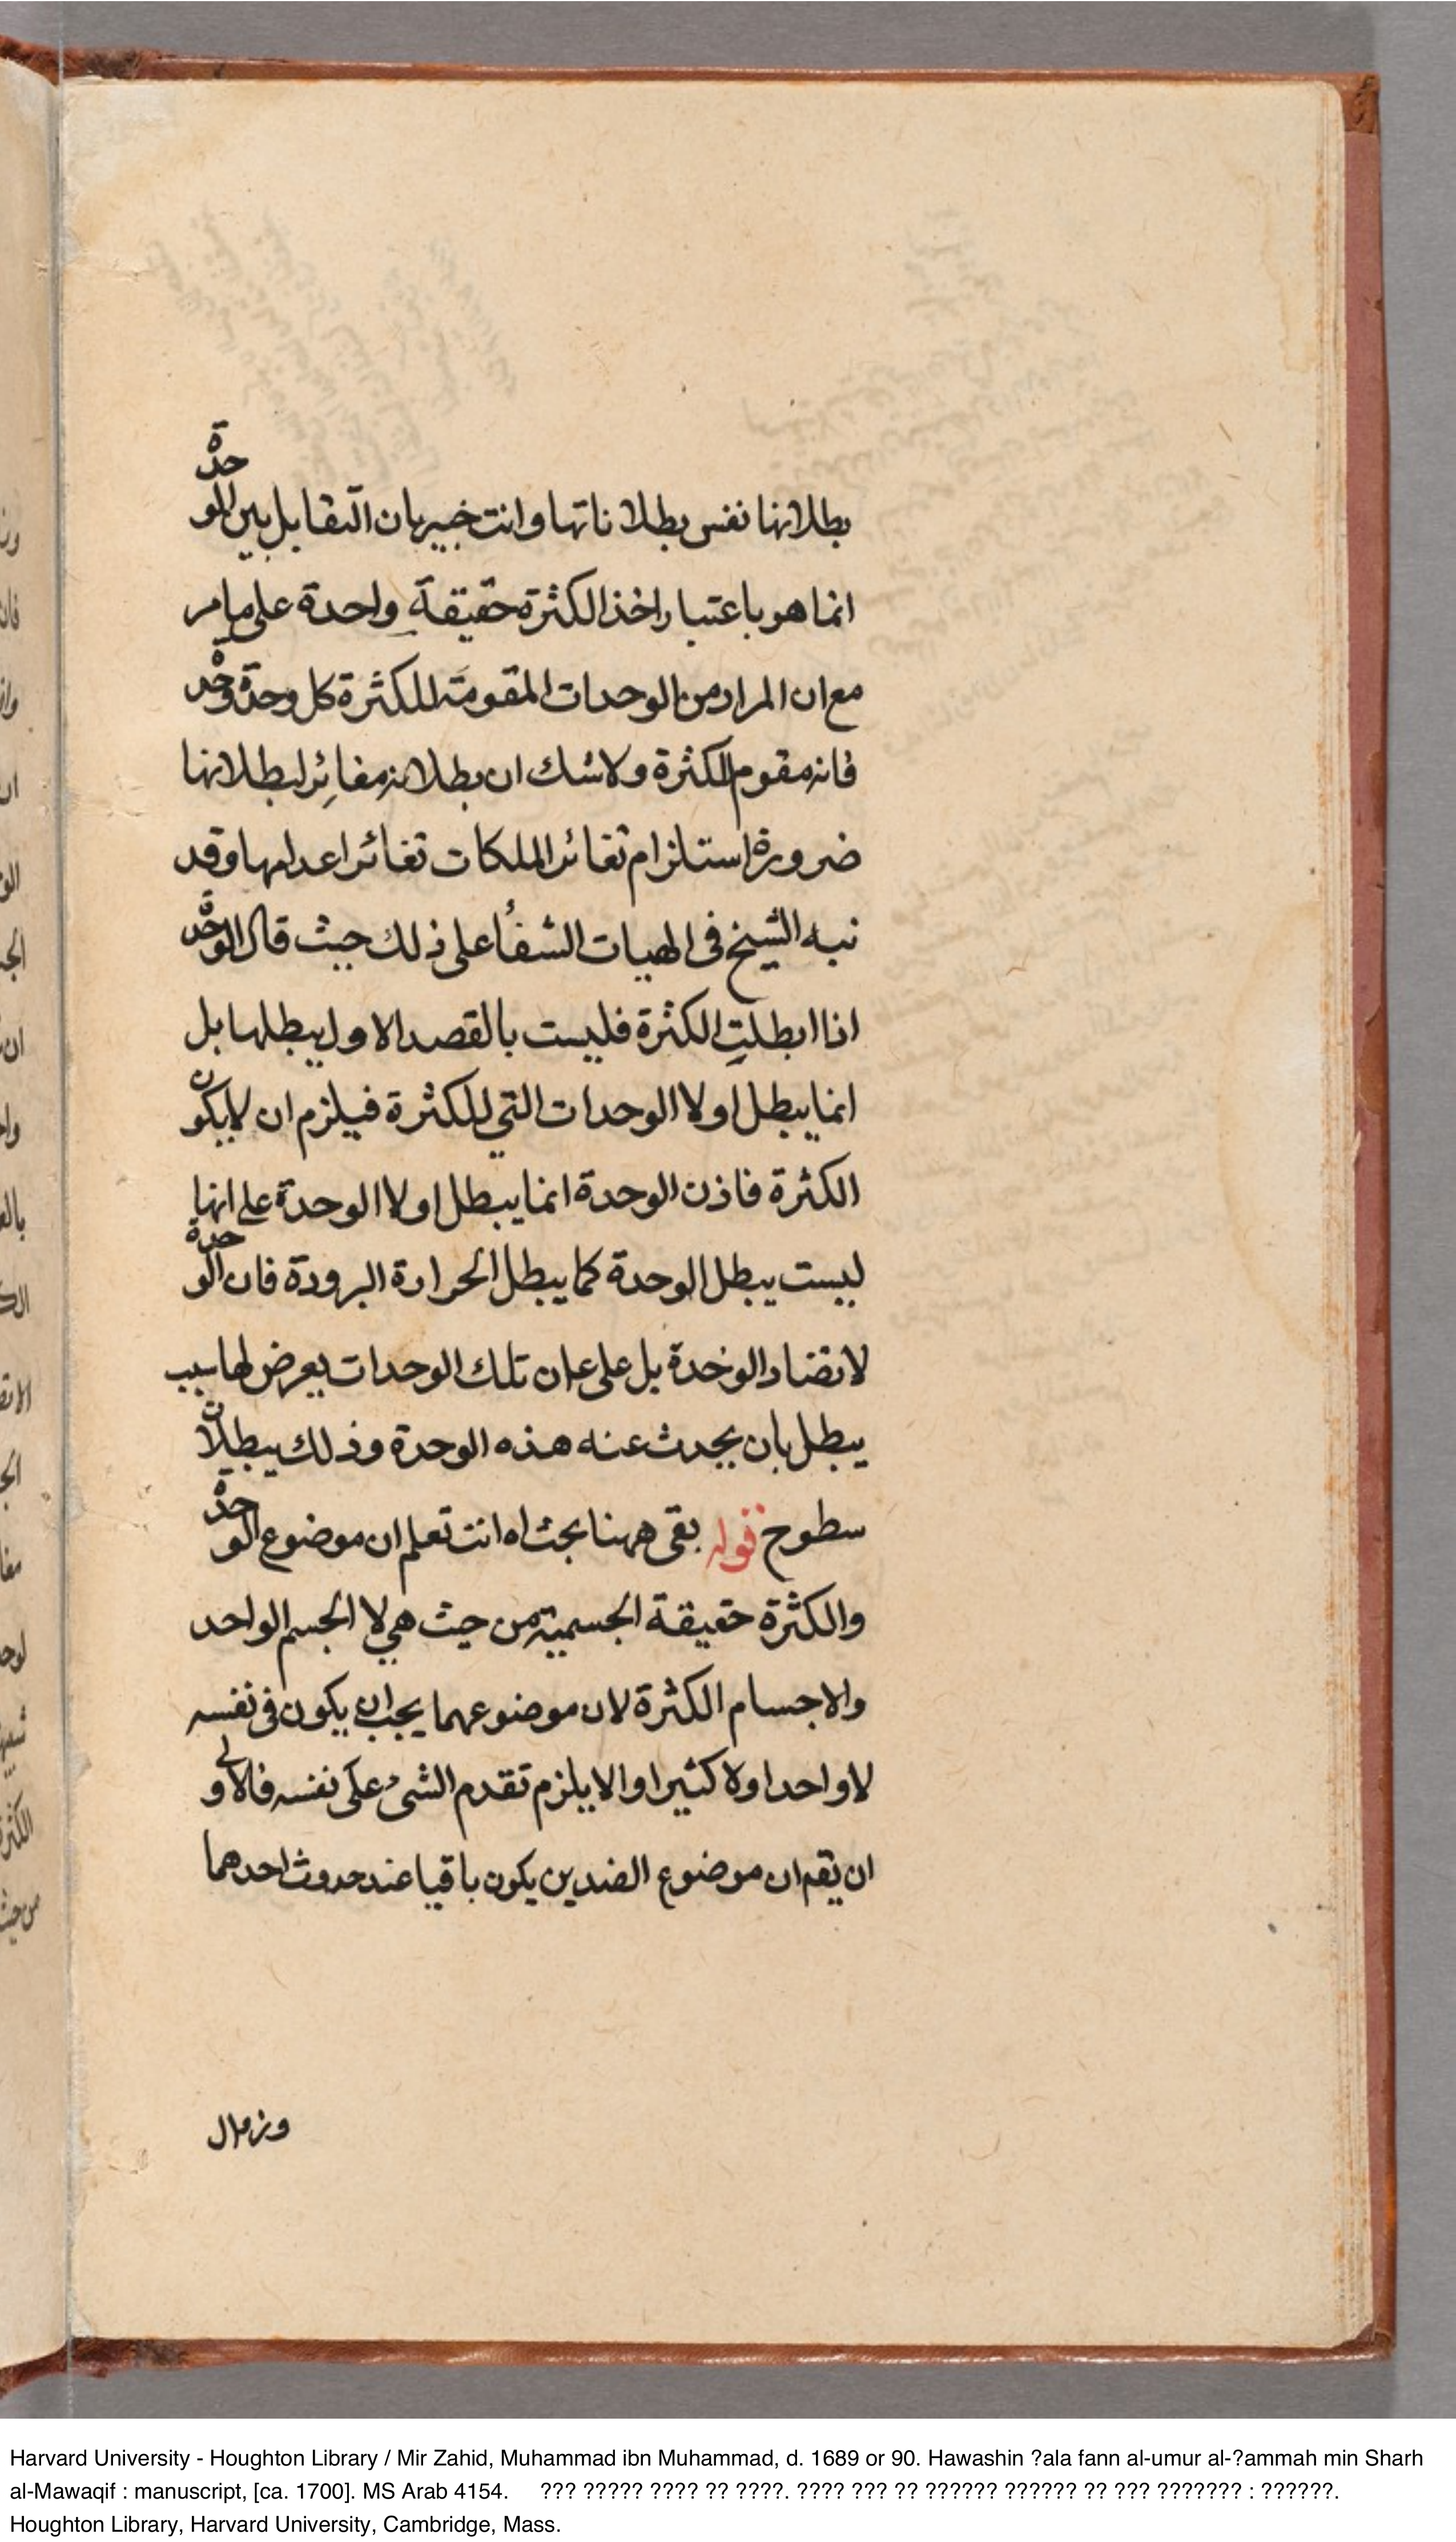 بطلانها نفس بطلاناتها وانت خبير بان التقابل بين الوحدة
انما هو باعتبار اخذ الكثرة حقيقة واحدة على ما مر
مع ان المراد من الوحدات المقومة للكثرة كل وحدة وحدة
فانه مقوم للكثرة ولا شك ان بطلانه مغائر لبطلانها
ضرورة استلزام تغائر الملكات تغائر اعدامها وقد
نبه الشيخ فى الهيات الشفأ على ذلك حيث قال الوحدة
اذا ابطلت الكثرة فليست بالقصد الاول يبطلها بل
انما يبطل اولا الوحدات التي للكثرة فيلزم ان لا يكون
الكثرة فاذن الوحدة انما يبطل اولا الوحدة على انها
ليست يبطل الوحدة كما يبطل الحرارة البرودة فان الوحدة
لا تضاد الوحدة بل على ان تلك الوحدات يعرض لها سبب
يبطل بان يحدث عنه هذه الوحدة وذلك يبطلان
سطوح قوله بقى ههنا بحث اه انت تعلم ان موضوع الوحدة
والكثرة حقيقة الجسمية من حيث هي لا الجسم الواحد
والاجسام الكثرة لان موضوعهما يجب ان يكون فى نفسه
لا واحدا ولا كثيرا والا يلزم تقدم الشئ على نفسه فالاولى
ان يقم ان موضوع الضدين يكون باقيا عند حدوث احدهما
Harvard University - Houghton Library / Mir Zahid, Muhammad ibn Muhammad, d. 1689 or 90. Hawashin ?ala fann al-umur al-?ammah min Sharh
al-Mawaqif : manuscript, [ca. 1700]. MS Arab 4154. ??? ????? ???? ?? ????. ???? ??? ?? ?????? ?????? ?? ??? ??????? : ??????.
Houghton Library, Harvard University, Cambridge, Mass.